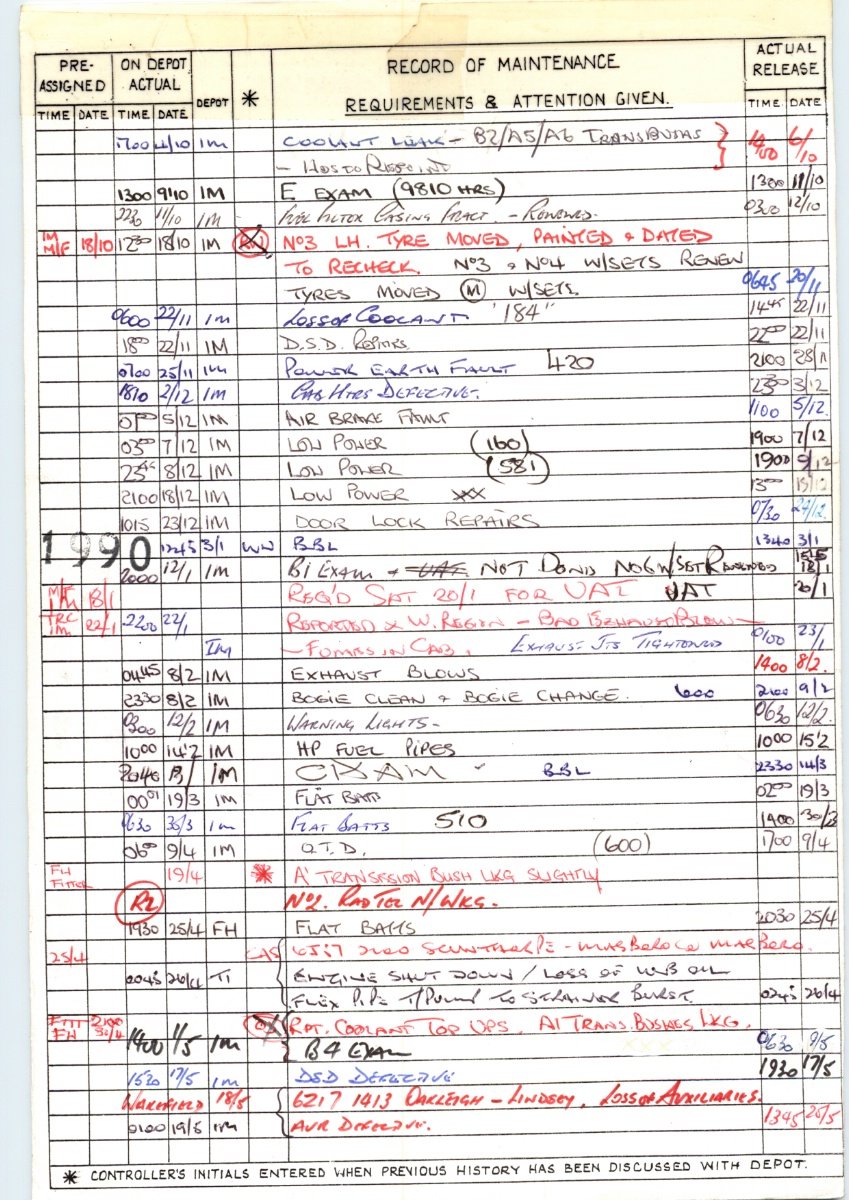 PRE-ASSIGNED ON DEPOT ACTUAL DEPOT * RECORD OF MAINTENANCE REQUIREMENTS & ATTENTION GIVEN. ACTUAL RELEASE
TIME DATE TIME DATE TIME DATE
1700 4/10 IM COOLANT LEAK - B2/A5/A6 TRANS BUSHS 1400 6/10
1300 9/10 IM E EXAM (9810 HRS) 1300 11/10
2230 11/10 IM FUEL FILTER CASING FRACT. - RENEWED. 0300 12/10
IM M/F 18/10 1200 18/10 IM No3 LH. TYRE MOVED, PAINTED & DATED
TO RECHECK. No3 & No4 W/SETS RENEW
TYRES MOVED M W/SETS 0645 20/11
0600 22/11 IM LOSS OF COOLANT "184" 1445 22/11
1800 22/11 IM D.S.D. REPAIRS 2200 22/11
0700 25/11 IM POWER EARTH FAULT 420 2100 28/11
1810 2/12 IM CAB HTRS DEFECTIVE. 2300 3/12
0700 5/12 IM AIR BRAKE FAULT 1100 5/12.
0300 7/12 IM LOW POWER (160) 1900 7/12
2345 8/12 IM LOW POWER (581) 1900 9/12
2100 18/12 IM LOW POWER 1300 19/12
1015 23/12 IM DOOR LOCK REPAIRS 0730 27/12.
1990 1245 3/1 WW BBL 1340 3/1
2000 12/1 IM B1 EXAM + UAT NOT DONE No6 W/SET 1515 18/1
M/F IM 18/1 REQ'D SAT 20/1 FOR UAT UAT 20/1
TRC IM. 22/1 2200 22/1 REPORTED x W. REGION - BAD EXHAUST BLOW -
IM - FUMES IN CAB. EXHAUST JTS TIGHTENED 0100 23/1
0445 8/2 IM EXHAUST BLOWS 1400 8/2.
2330 8/2 IM BOGIE CLEAN & BOGIE CHANGE. 600 2100 9/2
0300 12/2 IM WARNING LIGHTS - 0630 12/2.
1000 14/2 IM HP FUEL PIPES 1000 15/2
2040 IM C EXAM BBL 2330 14/3
0001 19/3 IM FLAT BATTS 0200 19/3
0630 30/3 IM FLAT BATTS 510 1400 30/3
0600 9/4 IM O.T.D. (600) 1700 9/4
FH FITTER 19/4 * 'A' TRANSISION BUSH LKG SLIGHTLY
R2 No2. RAD TEL N/WKG.
1930 25/4 FH FLAT BATTS 2030 25/4
25/4 CAS 6J17 2100 SCUNTHORPE -
0045 26/4 TI ENGINE SHUT DOWN / LOSS OF LUB OIL
FLEX PIPE T/PUMP TO STRAINER BURST. 0245 26/4
FITT FH 2100 30/4 RPT. COOLANT TOP UPS. A1 TRANS. BUSHES LKG.
1400 1/5 IM B4 EXAM 0630 9/5
1530 17/5 IM DSD DEFECTIVE 1930 17/5
WAKEFIELD 18/5 6Z17 1413 OAKLEIGH - LINDSEY, LOSS OF AUXILIARIES.
0100 19/5 IM AVR DEFECTIVE. 1345 25/5
* CONTROLLER'S INITIALS ENTERED WHEN PREVIOUS HISTORY HAS BEEN DISCUSSED WITH DEPOT.